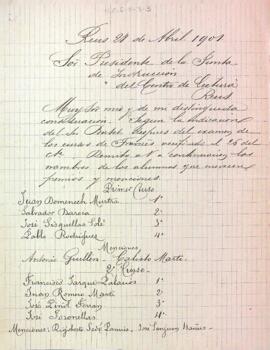 Reus 28 de Abril 1901
Sor Presidente de la Junta
de Instruccion
del Centro de Lectura
Reus
Muy Sor mio y de mi distinguida
consideracion: Segun la indicacion
del Sor despues del examen de
los cursos de Francés verificado el 25 del
Remito a V a continuacion los
nombres de los alumnos que merecen
premios y menciones.
Primer Curso
Juan Domenech Martra 1º
Salvador Barera 2º
José Sisquellas Solé 3º
Pablo Rodriguez 4º
Menciones
Antonio Guillen - Calisto Martí.
2º Curso.
Francisco Jarque Palacios 1º
Juan Romeu Martí 2º
José Ferran 3º
José 4º
Menciones: Rigoberto José Jonquer